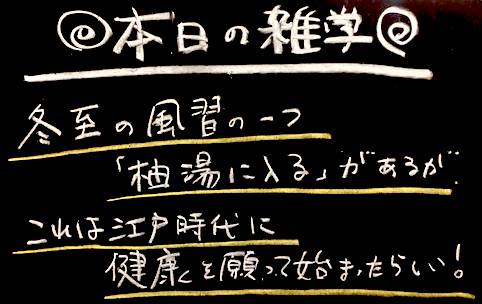 本日の雑学
冬至の風習の一つ
「柚湯に入る」があるが
これは江戸時代に
健康を願って始まったらしい!